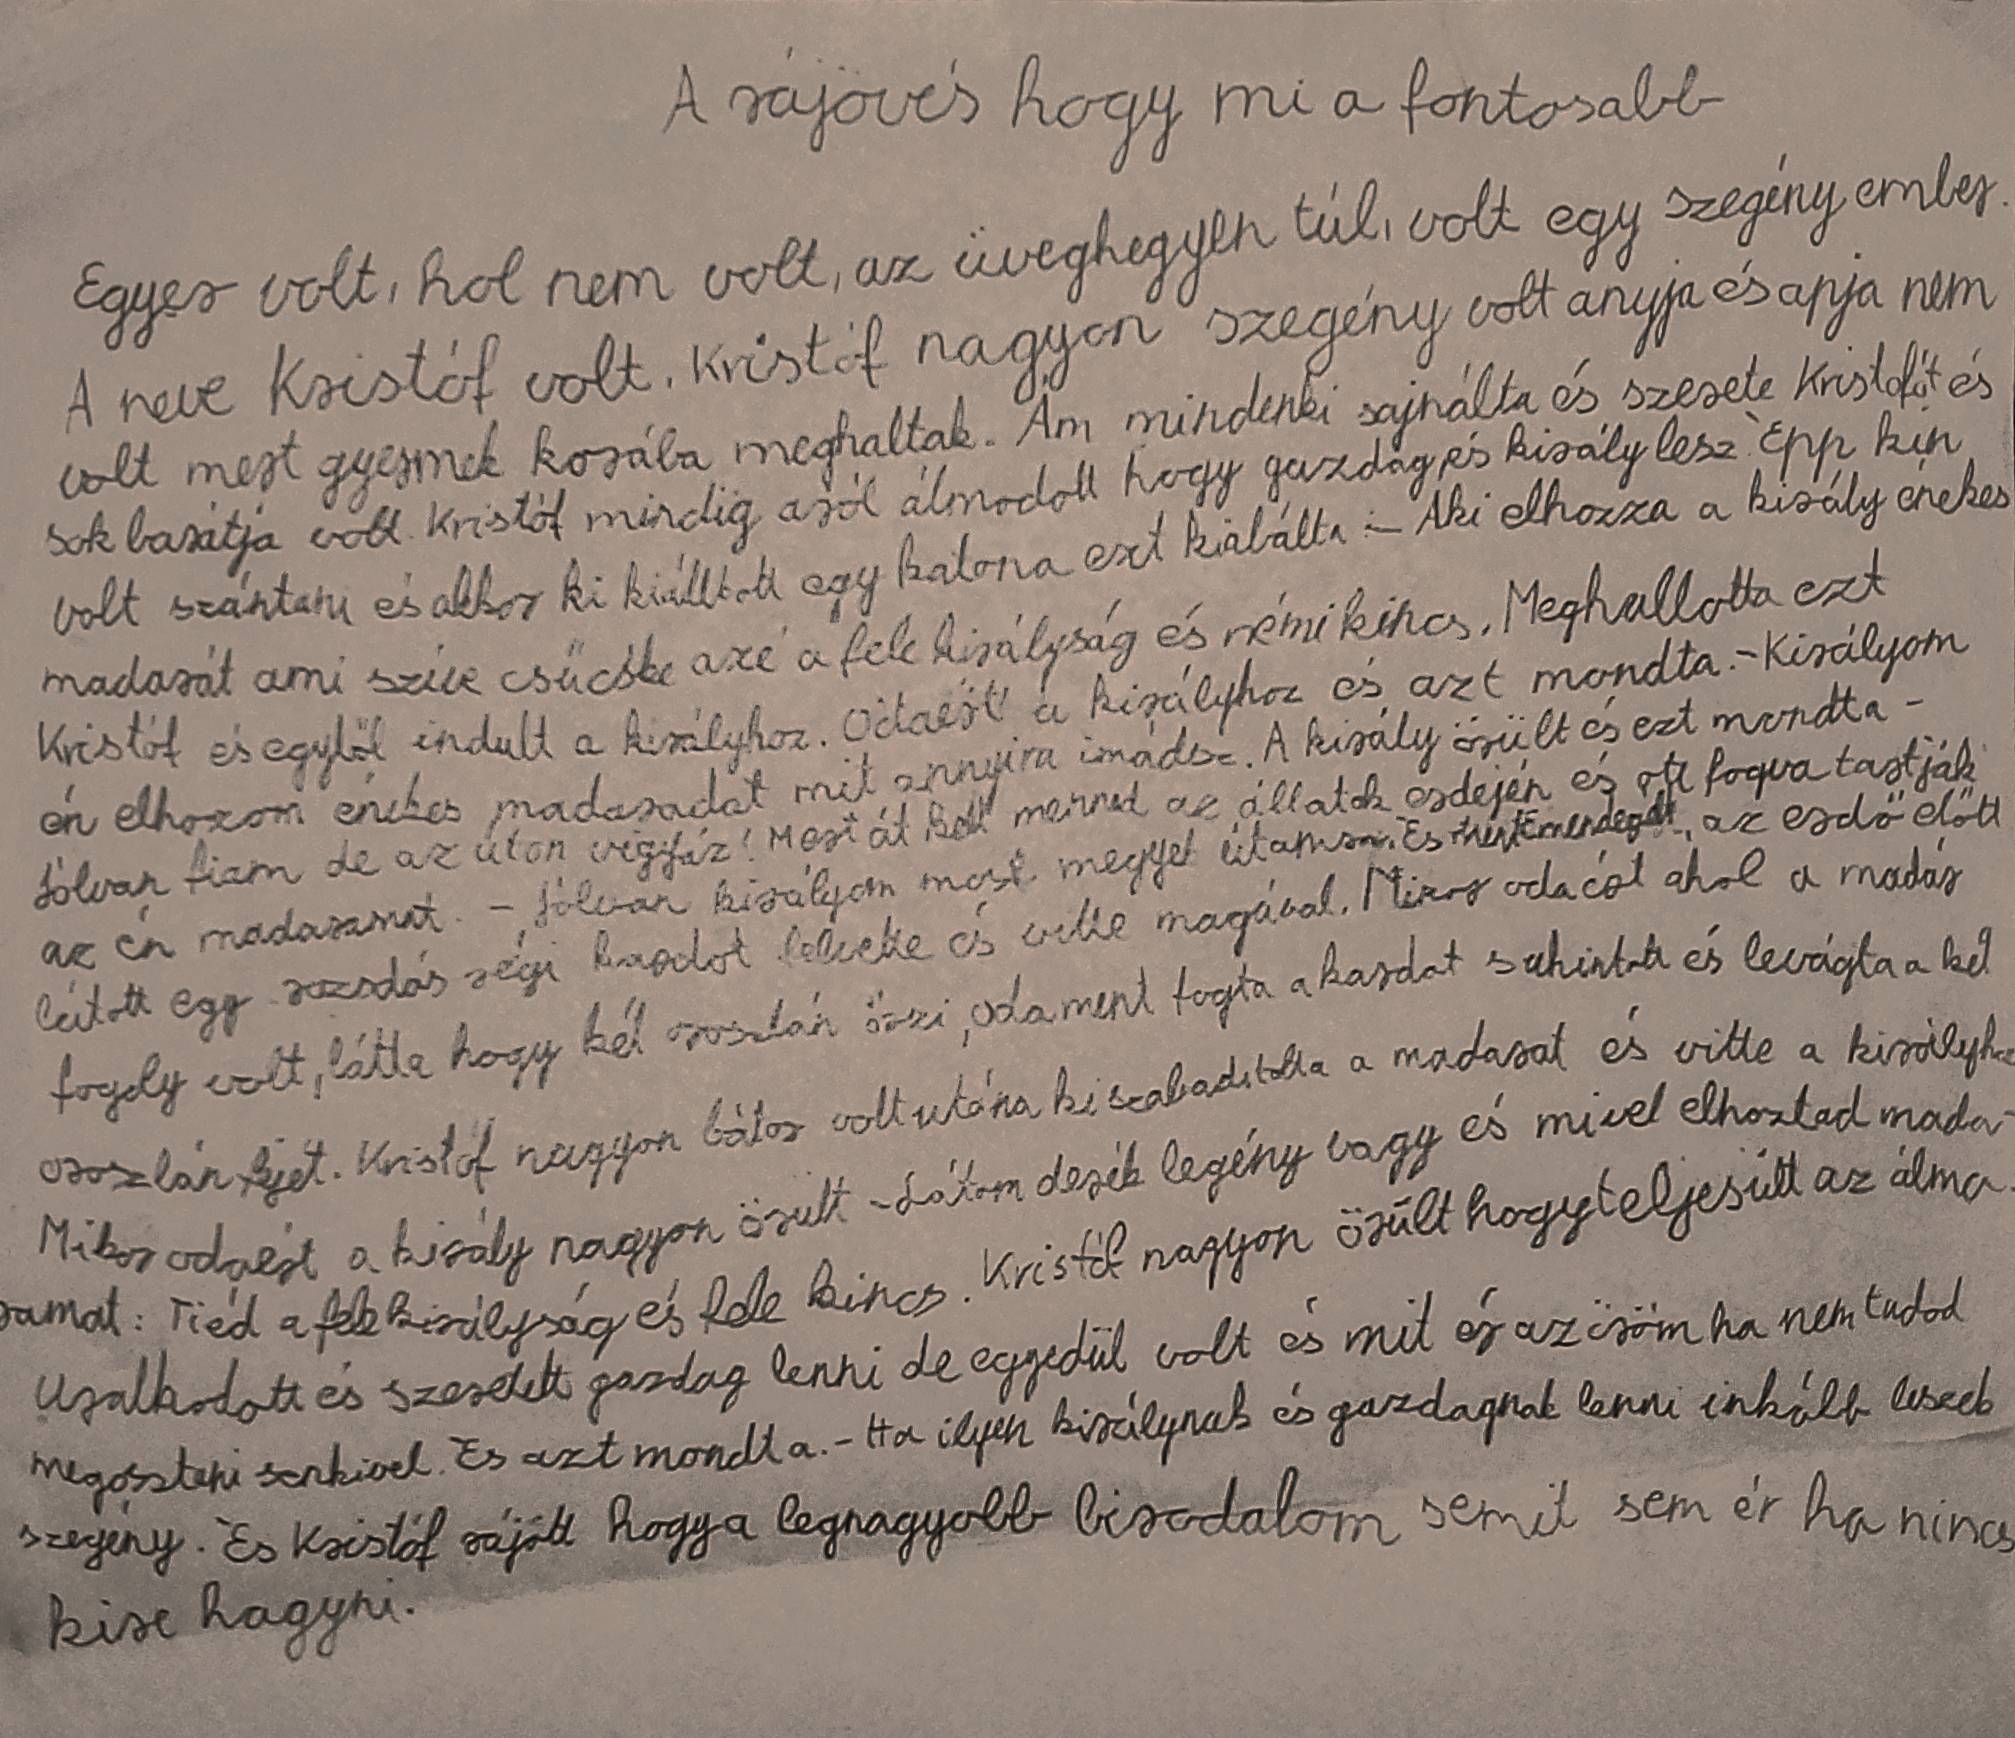 A rájövés hogy mi a fontosabb
Egyer volt, hol nem volt, az üveghegyen túl, volt egy szegény ember.
A neve Kristóf volt. Kristóf nagyon szegény volt anyja és apja nem
volt mert gyermek korába meghaltak. Ám mindenki sajnálta és szerete Kristófot és
sok barátja volt. Kristóf mindig aról álmodott hogy gazdag és király lesz. Épp kin
volt szántani és akkor ki kiálltott egy katona ezt kiabálta :- Aki elhozza a király énekes
madarát ami szíve csücske azé a fele királyság és némi kincs. Meghallotta ezt
Kristóf és egyből indult a királyhoz. Odaért a királyhoz és azt mondta.- Királyom
én elhozom énekes madaradat mit annyira imádsz. A király örült és ezt mondta -
Jólvan fiam de az úton vigyáz! Mert át kell menned az állatok erdején és ott fogva tartják
az én madaramat. - Jólvan királyom most megyek útamra. És az erdő előtt
látott egy rozsdás régi kardot felvette és vitte magával. Mikor odaért ahol a madár
fogoly volt, látta hogy két oroszlán őrzi, odament fogta a kardat suhintott és levágta a két
oroszlán fejét. Kristóf nagyon bátor volt utána kiszabadította a madarat és vitte a királyhoz
Mikor odaért a király nagyon örült - Látom derék legény vagy és mivel elhoztad mada-
ramat: Tiéd a fele királyság és fele kincs. Kristóf nagyon örült hogy teljesült az álma.
Uralkodott és szeretett gazdag lenni de egyedül volt és mit ér az öröm ha nem tudod
megosztani senkivel. És azt mondta.- Ha ilyen királynak és gazdagnak lenni inkább leszek
szegény. És Kristóf rájött hogy a legnagyobb birodalom semit sem ér ha nincs
kire hagyni.